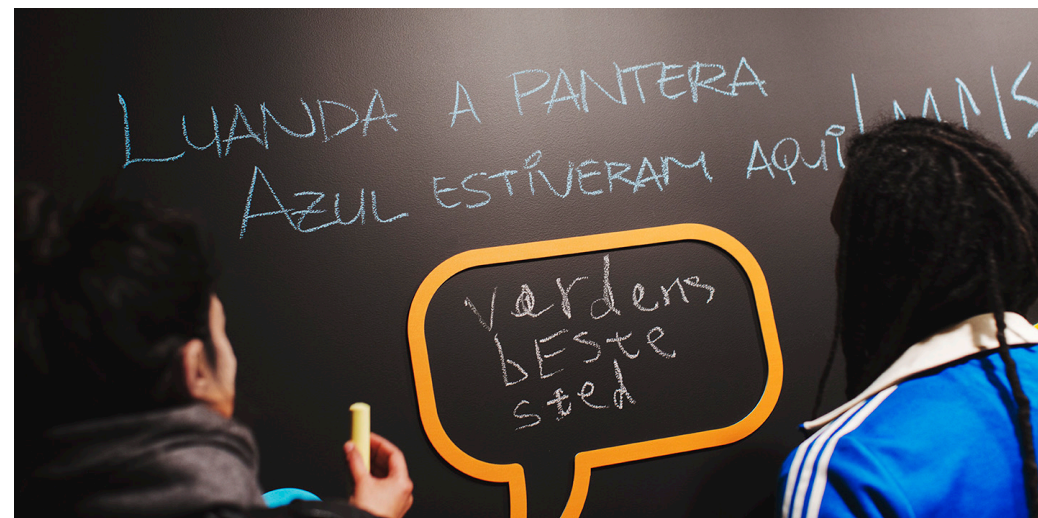 LUANDA A PANTERA
AZUL ESTIVERAM AQUI
verdens
bEste
sted